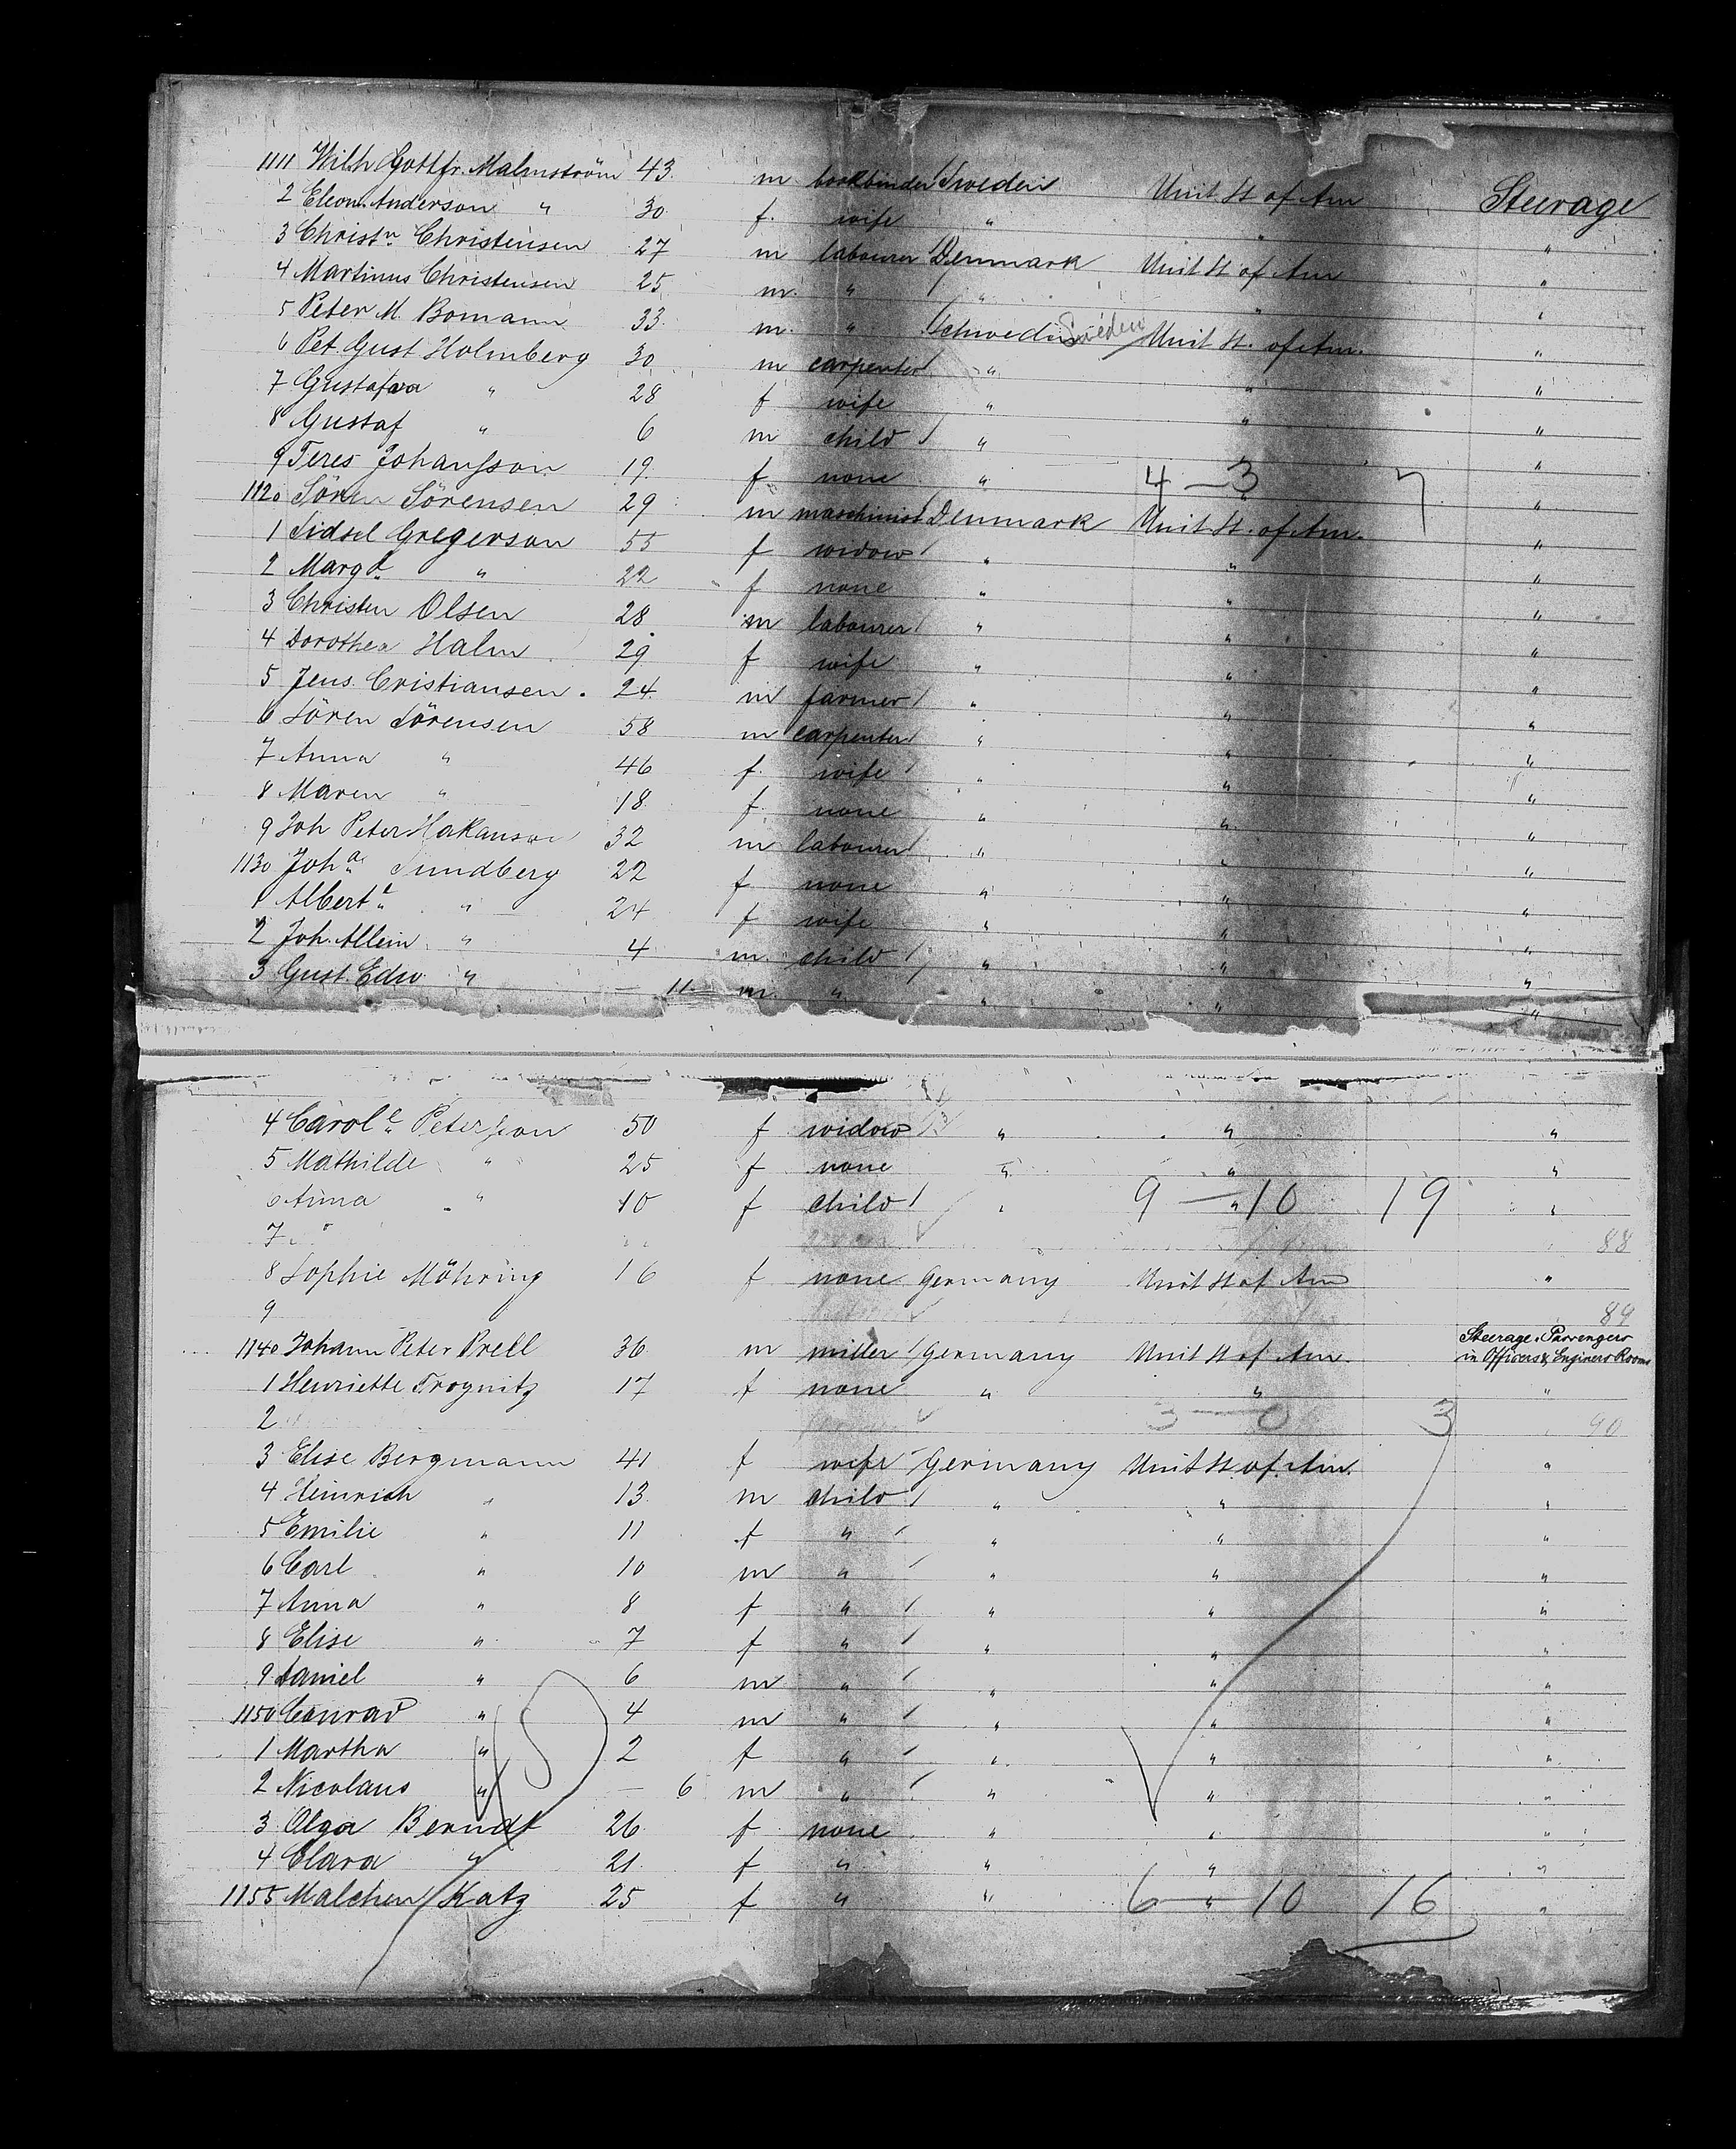 1111 Wilh Gottfr. Malmström 43. m bookbinder Sweden Unit St of Am Steerage
2 Eleon. Anderson " 30 f. wife " " "
3 Christn Christensen 27 m labourer Denmark Unit St of Am "
4 Martinus Christensen 25 m. " " " "
5 Peter M. Bomann 33. m. " Schweden Sweden Unit St. of Am. "
6 Pet. Gust Holmberg 30 m carpenter " " "
7 Gustafva " 28 f wife " " "
8 Gustaf " 6 m child " "
9 Teres Johansson 19. f none " " 4 — 3 7 "
1120 Sören Sörensen 29 m maschinist Denmark Unit St. of Am. "
1 Sidsel Gregerson 55 f widow " " "
2 Margt " 22 f none " " "
3 Christen Olsen 28 m labourer " " "
4 Dorothea Halm 29 f wife " " "
5 Jens Cristiansen. 24. m farmer " " "
6 Sören Sörensen 58 m carpenter " " "
7 Anna " 46 f. wife " " "
8 Maren " 18. f. none " " "
9 Joh Peter Hakanson 32 m labourer " " "
1130 Joha Sundberg 22 f none " " "
1 Albertе " 24 f wife " " "
2 Joh. Allein " 4 m. child " " "
3 Gust. Edw " — 11. m. " " " "
4 Carole Petersson 50 f widow " " "
5 Mathilde " 25 f none " " "
6 Anna " 10 f child " " 9 — 10 19 "
7 88
8 Sophie Möhring 16 f none Germany Unit St of Am "
9 89
1140 Johann Peter Prell 36 m miller Germany Unit St of Am. Steerage Passengers in Officers & Engineers Rooms
1 Henriette Trognitz 17 f none " " "
2 3 — 0 3 90
3 Elise Bergmann 41 f wife Germany Unit St. of Am. "
4 Heinrich " 13. m child " " "
5 Emilie " 11 f " " " "
6 Carl " 10 m " " " "
7 Anna " 8 f " " " "
8 Elise " 7 f " " " "
9 Daniel " 6 m " " " "
1150 Conrad " 4 m " " " "
1 Martha " 2 f " " " "
2 Nicolaus " — 6 m " " " "
3 Olga Berndt 26 f none " " "
4 Clara " 21. f " " " "
1155 Malchen Katz 25 f " " " 6 — 10 16 "